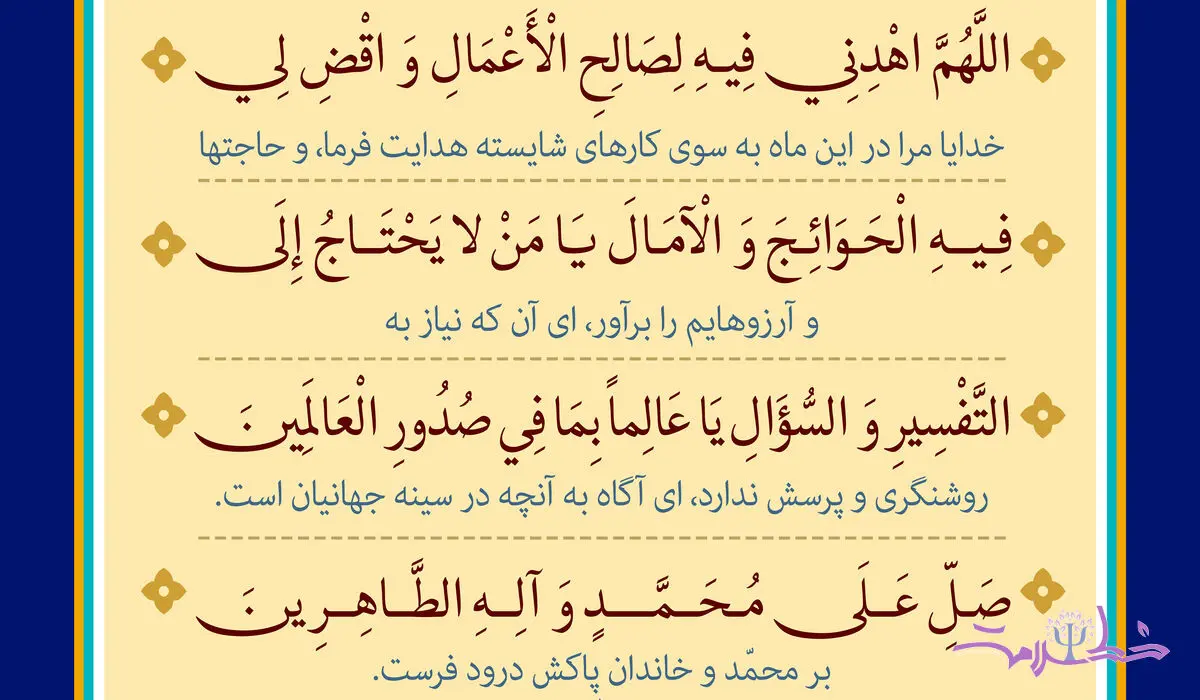 اللَّهُمَّ اهْدِنِي فِيهِ لِصَالِحِ الْأَعْمَالِ وَ اقْضِ لِي
خدایا مرا در این ماه به سوی کارهای شایسته هدایت فرما، و حاجتها
فِيهِ الْحَوَائِجَ وَ الْآمَالَ يَا مَنْ لا يَحْتَاجُ إِلَى
و آرزوهایم را برآور، ای آن که نیاز به
التَّفْسِيرِ وَ السُّؤَالِ يَا عَالِماً بِمَا فِي صُدُورِ الْعَالَمِينَ
روشنگری و پرسش ندارد، ای آگاه به آنچه در سینه جهانیان است.
صَلِّ عَلَى مُحَمَّدٍ وَ آلِهِ الطَّاهِرِينَ
خط سلامت
بر محمّد و خاندان پاکش درود فرست.